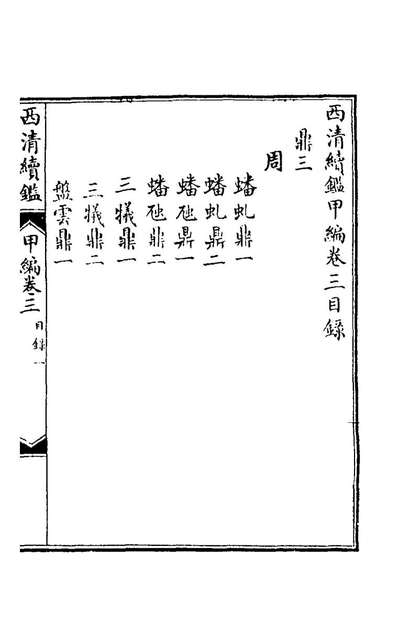 西清續鑑甲編卷三目錄
鼎三
周
蟠虬鼎一
蟠虬鼎二
蟠虺鼎一
蟠虺鼎二
三犧鼎一
三犧鼎二
盤雲鼎一
西清續鑑 甲編卷三 目錄 一